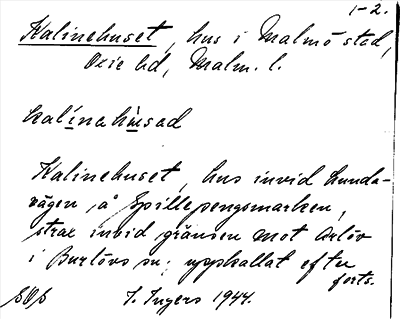 1-2.
Kalinehuset, hus i Malmö stad,
Oxie hd, Malm. l.
kalinahúsad
Kalinehuset, hus invid Lunda-
vägen å Spillepengsmarken,
strax invid gränsen mot Arlöv
i Burlövs sn; uppkallat efter
forts.
I. Ingers 1944.